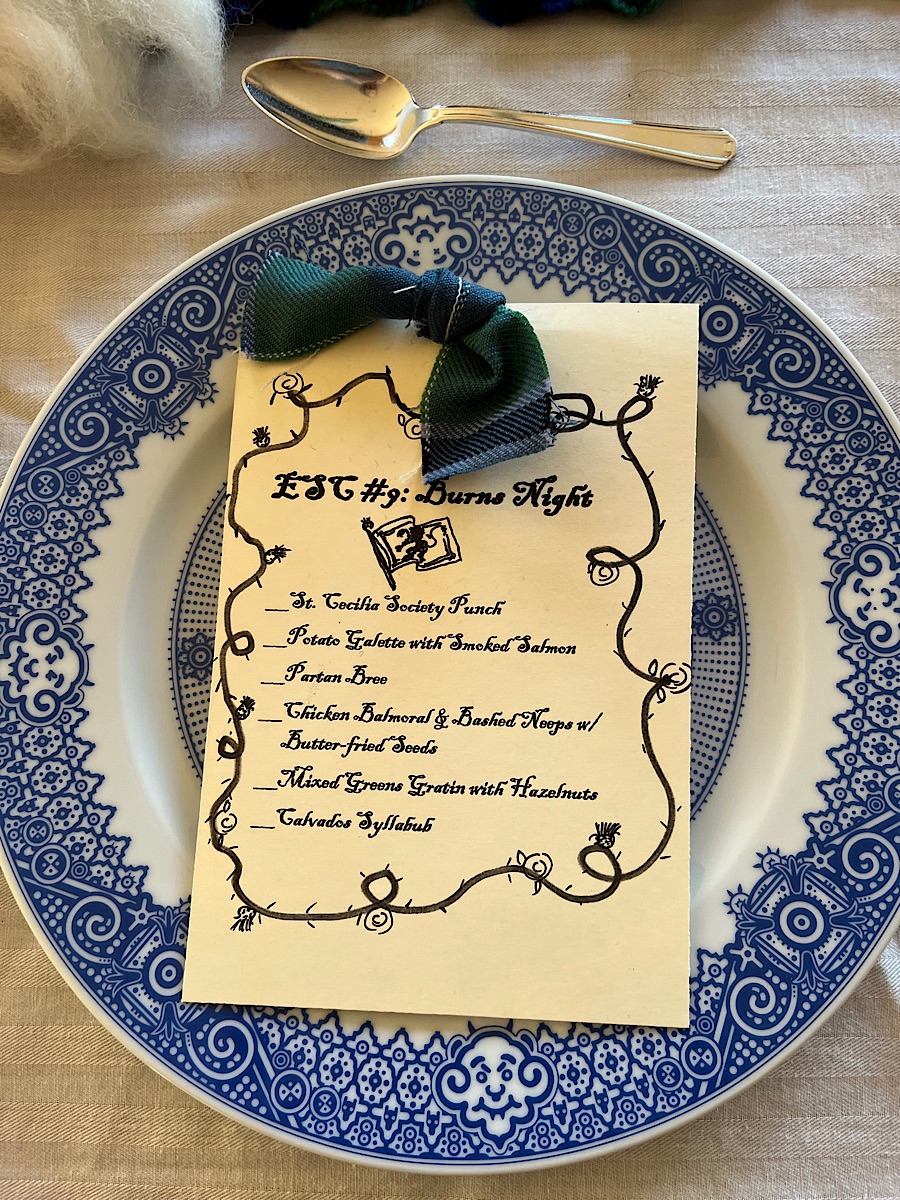 ESC #9: Burns Night
__St. Cecilia Society Punch
__Potato Galette with Smoked Salmon
__Partan Bree
__Chicken Balmoral & Bashed Neeps w/
Butter-fried Seeds
__Mixed Greens Gratin with Hazelnuts
__Calvados Syllabub